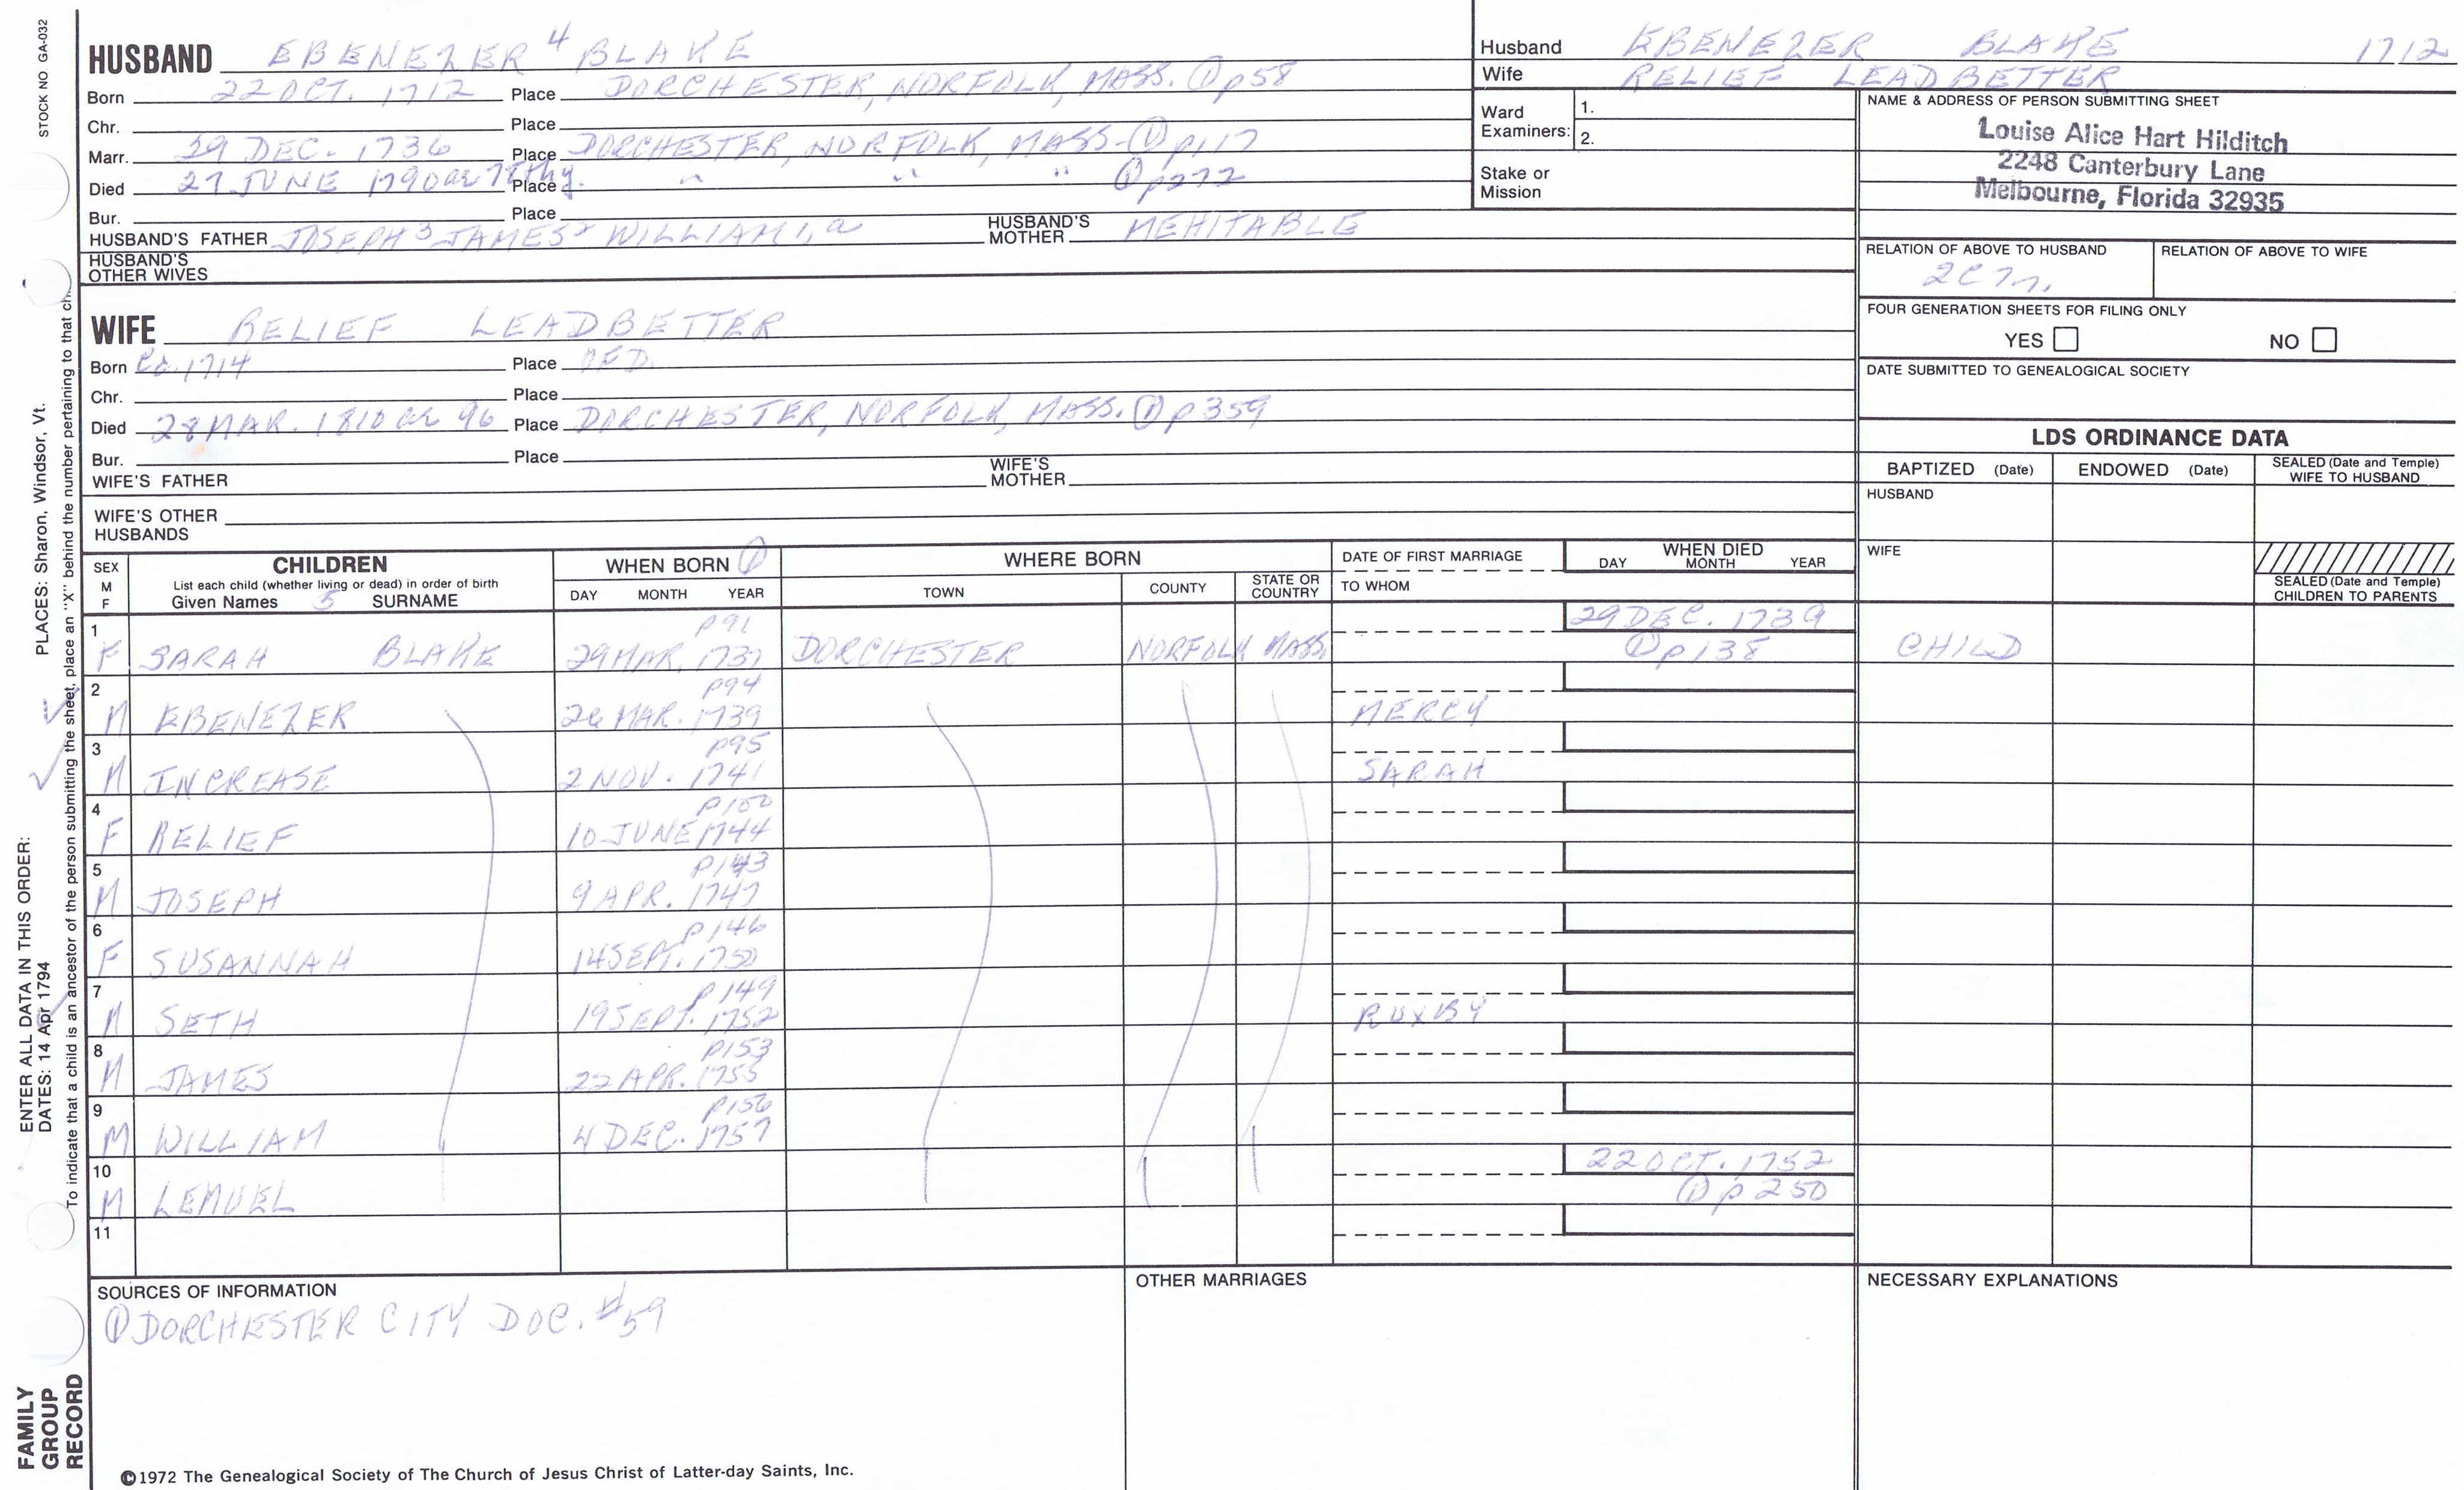 STOCK NO GA-032
HUSBAND EBENEZER 4 BLAKE
Born 22 OCT. 1712 Place DORCHESTER, NORFOLK, MASS. ① p58
Chr. Place
Marr. 29 DEC. 1736 Place DORCHESTER, NORFOLK, MASS. ① p117
Died 27 JUNE 1790 ae 78thy. Place " " " ① p272
Bur. Place
HUSBAND'S FATHER JOSEPH 3 JAMES 2 WILLIAM 1, a HUSBAND'S MOTHER MEHITABLE
HUSBAND'S OTHER WIVES
Husband EBENEZER BLAKE 1712
Wife RELIEF LEADBETTER
Ward Examiners: 1.
2.
Stake or Mission
NAME & ADDRESS OF PERSON SUBMITTING SHEET
Louise Alice Hart Hilditch
2248 Canterbury Lane
Melbourne, Florida 32935
RELATION OF ABOVE TO HUSBAND RELATION OF ABOVE TO WIFE
FOUR GENERATION SHEETS FOR FILING ONLY
YES NO
DATE SUBMITTED TO GENEALOGICAL SOCIETY
WIFE RELIEF LEADBETTER
Born Ca. 1714 Place
Chr. Place
Died 28 MAR. 1810 ae 96 Place DORCHESTER, NORFOLK, MASS. ① p359
Bur. Place
WIFE'S FATHER WIFE'S MOTHER
WIFE'S OTHER HUSBANDS
LDS ORDINANCE DATA
BAPTIZED (Date) ENDOWED (Date) SEALED (Date and Temple) WIFE TO HUSBAND
HUSBAND
WIFE
SEALED (Date and Temple) CHILDREN TO PARENTS
SEX M F
CHILDREN
List each child (whether living or dead) in order of birth
Given Names 5 SURNAME
WHEN BORN ①
DAY MONTH YEAR
WHERE BORN
TOWN COUNTY STATE OR COUNTRY
DATE OF FIRST MARRIAGE
TO WHOM
WHEN DIED
DAY MONTH YEAR
1 p91 29 DEC. 1739
F SARAH BLAKE 29 MAR. 1737 DORCHESTER NORFOLK MASS. ① p138 CHILD
2 p94
M EBENEZER 26 MAR. 1739 MERCY
3 p95
M INCREASE 2 NOV. 1741 SARAH
4 p100
F RELIEF 10 JUNE 1744
5 p143
M JOSEPH 9 APR. 1747
6 p146
F SUSANNAH 14 SEPT. 1750
7 p149
M SETH 19 SEPT. 1752 RUXBY
8 p153
M JAMES 22 APR. 1755
9 p156
M WILLIAM 4 DEC. 1757
10 22 OCT. 1752
M LEMUEL ① p250
11
SOURCES OF INFORMATION
① DORCHESTER CITY DOC. #59
OTHER MARRIAGES
NECESSARY EXPLANATIONS
©1972 The Genealogical Society of The Church of Jesus Christ of Latter-day Saints, Inc.
FAMILY GROUP RECORD
ENTER ALL DATA IN THIS ORDER:
DATES: 14 Apr 1794 PLACES: Sharon, Windsor, Vt.
To indicate that a child is an ancestor of the person submitting the sheet, place an "X" behind the number pertaining to that